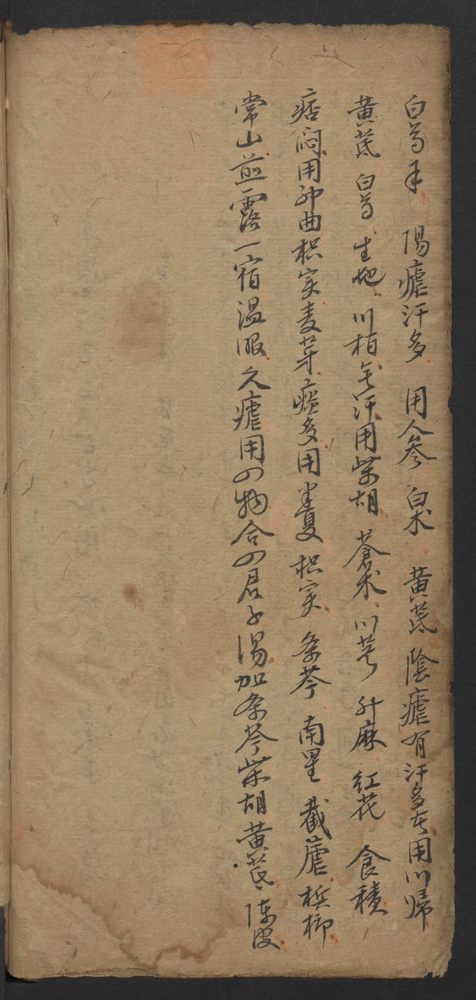 白芍末 陽瘧汗多 用人參 白朮 黃芪 陰瘧有汗多者用川歸
黃芪 白芍 生地 川柏 無汗用柴胡 蒼朮 川芎 升麻 紅花 食積
痞悶用神曲枳实麦芽 痰多用半夏 枳实 条芩 南星 截瘧 梹柳
常山煎露一宿温服 久瘧用四物合四君子湯加条芩柴胡黃芪陳皮